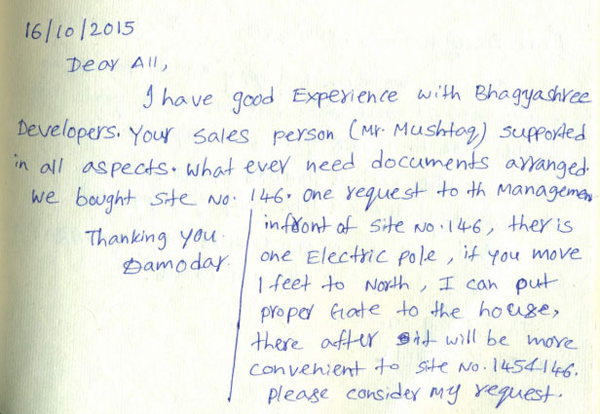 16/10/2015
Dear All,
I have good Experience with Bhagyashree
Developers. Your sales person (Mr. Mushtaq) supported
in all aspects. what ever need documents arranged.
We bought site No. 146. one request to th Managemen
infront of site No. 146, ther is
one Electric pole, if you move
1 feet to North, I can put
proper Gate to the house,
there after it will be more
convenient to site No. 145 & 146.
please consider my request.
Thanking you.
Damodar.